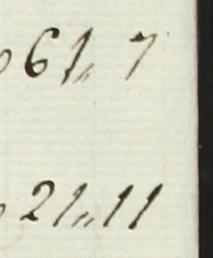 61,, 7
21,, 11